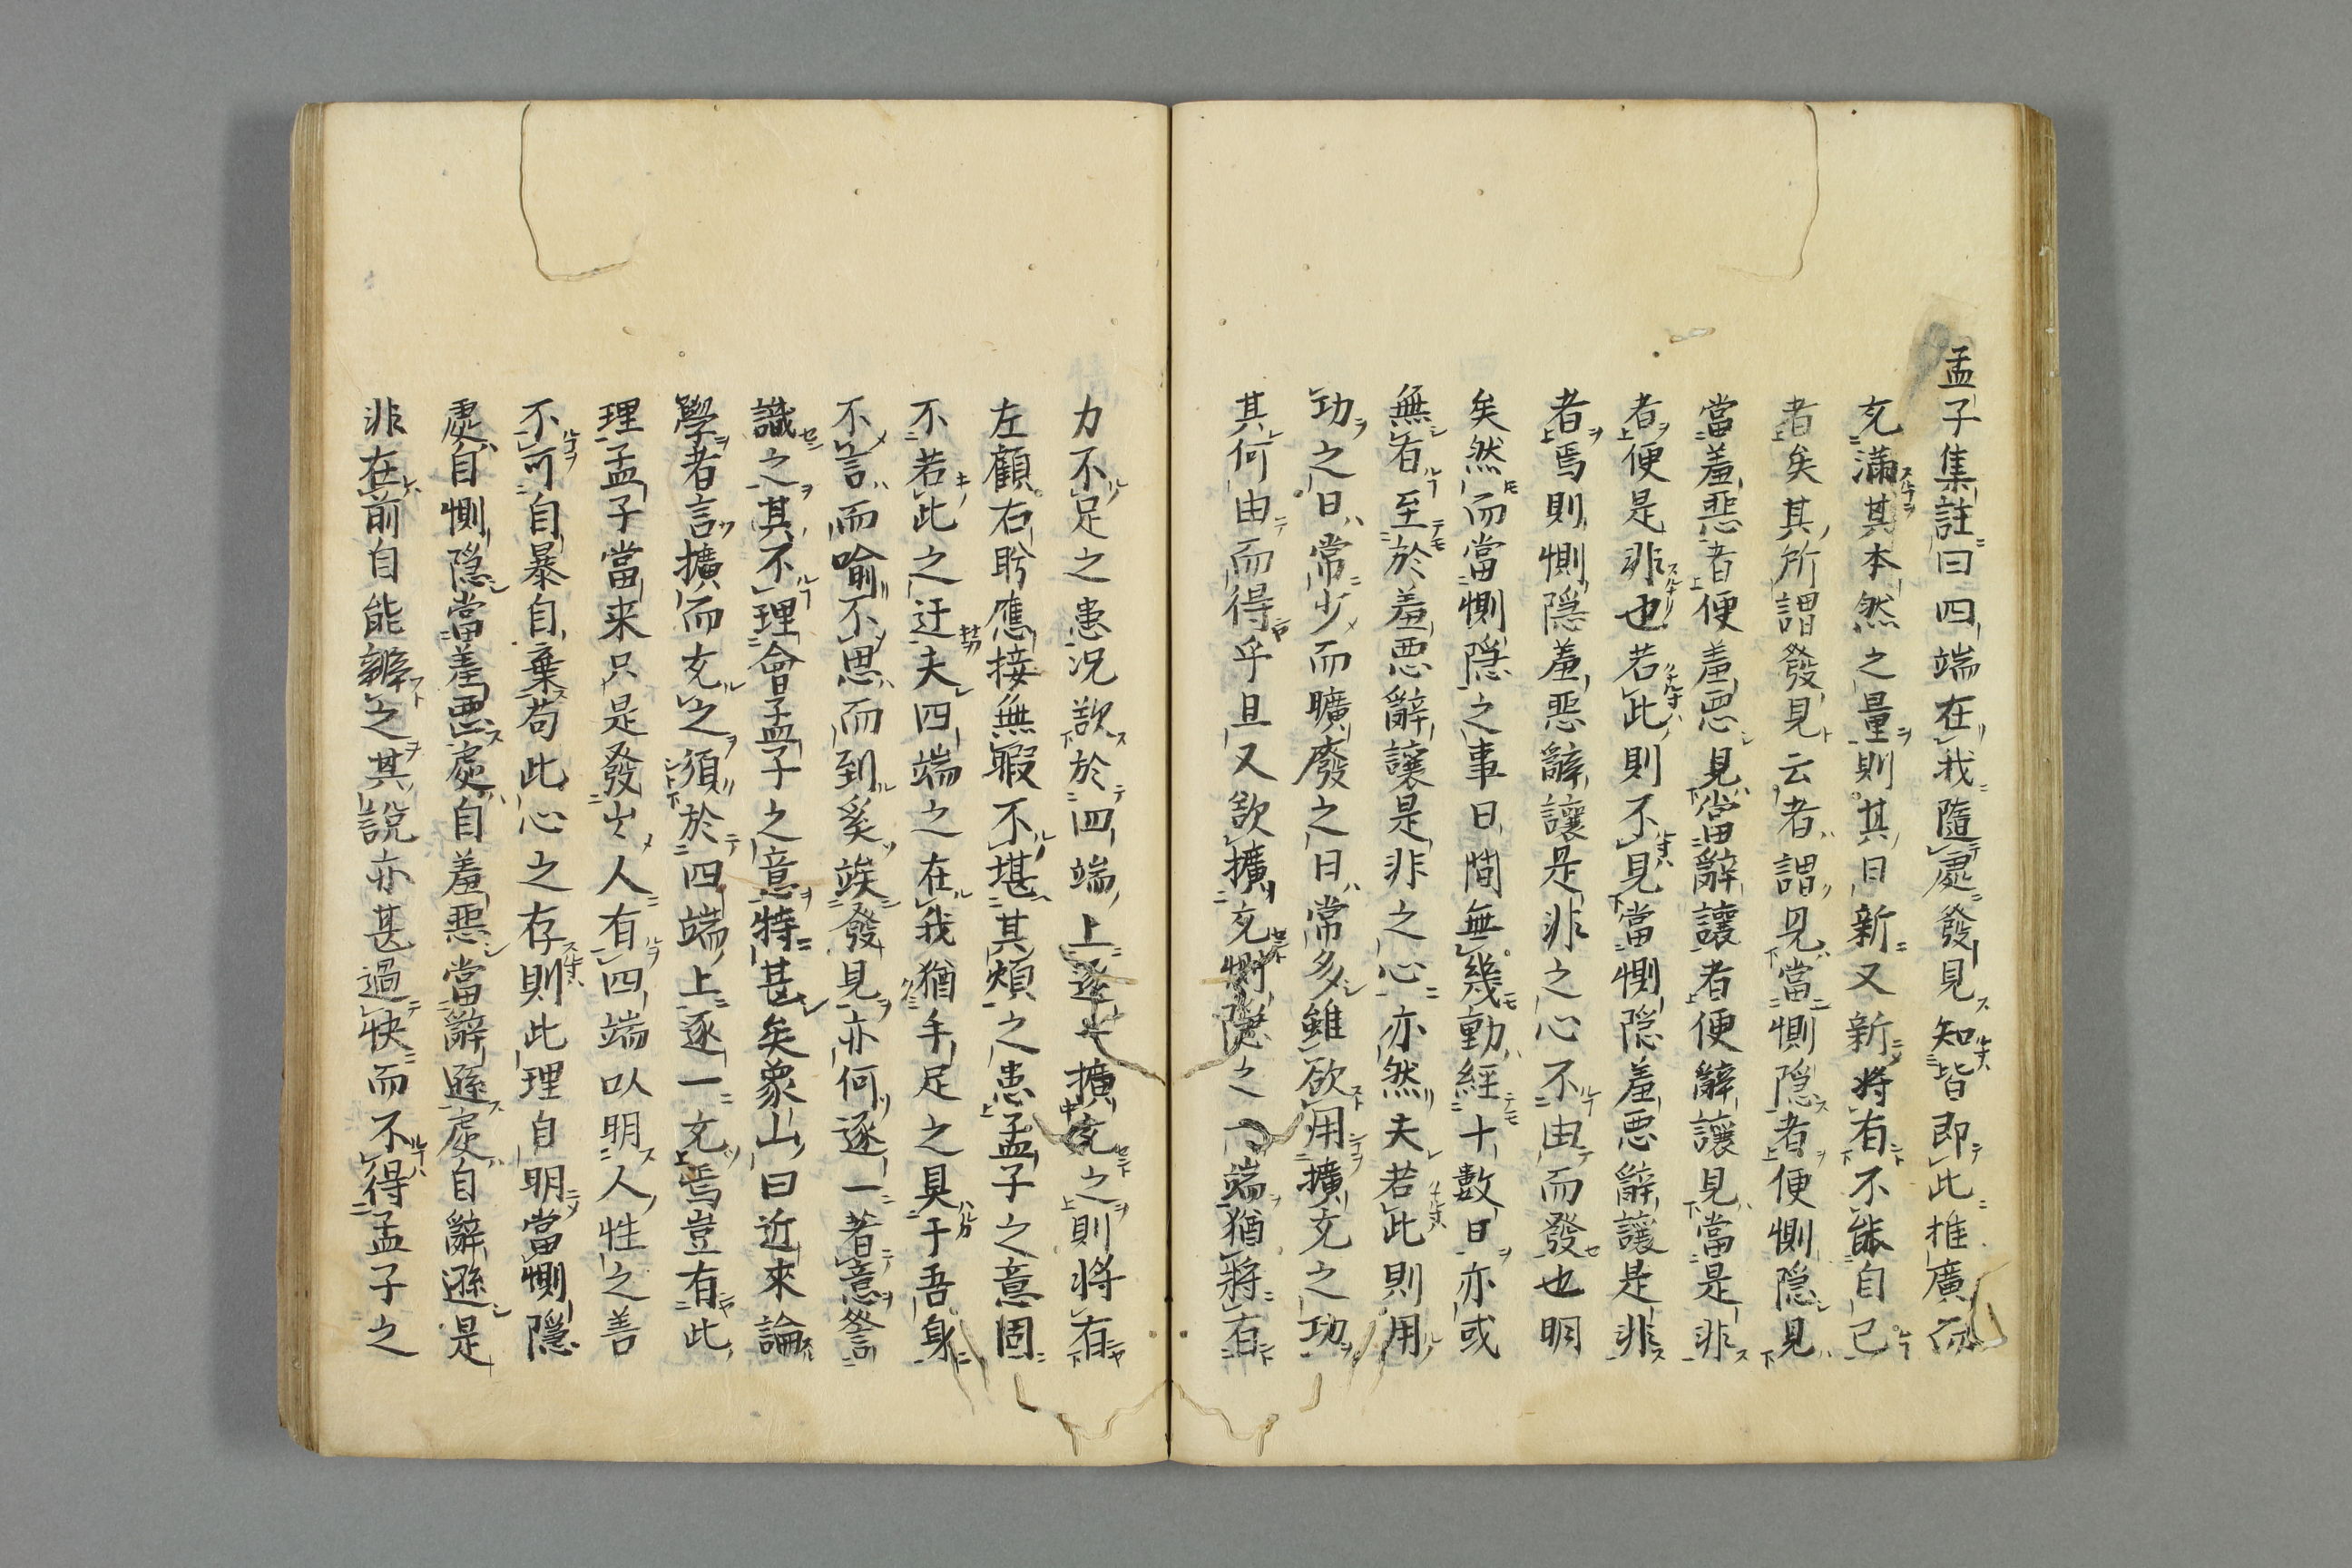 孟子集註曰四端在我隨處發見知皆即此推廣而
充滿其本然之量則其日新又新將有不能自已
者矣其所謂發見云者謂見當惻隠者便惻隠見
當羞惡者便羞惡見當辭讓者便辭讓見當是非
者便是非也若此則不見當惻隠羞惡辭讓是非
者焉則惻隠羞惡辭讓是非之心不由而發也明
矣然而當惻隠之事日間無幾動經十數日亦或
無有至於羞惡辭讓是非之心亦然夫若此則用
功之日常少而曠廢之日常多雖欲用擴充之功
其何由而得乎且又欲擴充惻隠之一端猶將有
力不足之患況欲於四端上逐一擴充之則將有
左顧右盻應接無暇不堪其煩之患孟子之意固
不若此之迂夫四端之在我猶手足之具于吾身
不言而喻不思而到奚竢發見亦何逐一著意詧
識之其不理會孟子之意特甚矣象山曰近來論
學者言擴而充之須於四端上逐一充焉豈有此
理孟子當来只是發出人有四端以明人性之善
不可自暴自棄苟此心之存則此理自明當惻隠
處自惻隠當羞惡處自羞惡當辭遜處自辭遜是
非在前自能辨之其說亦甚過快而不得孟子之